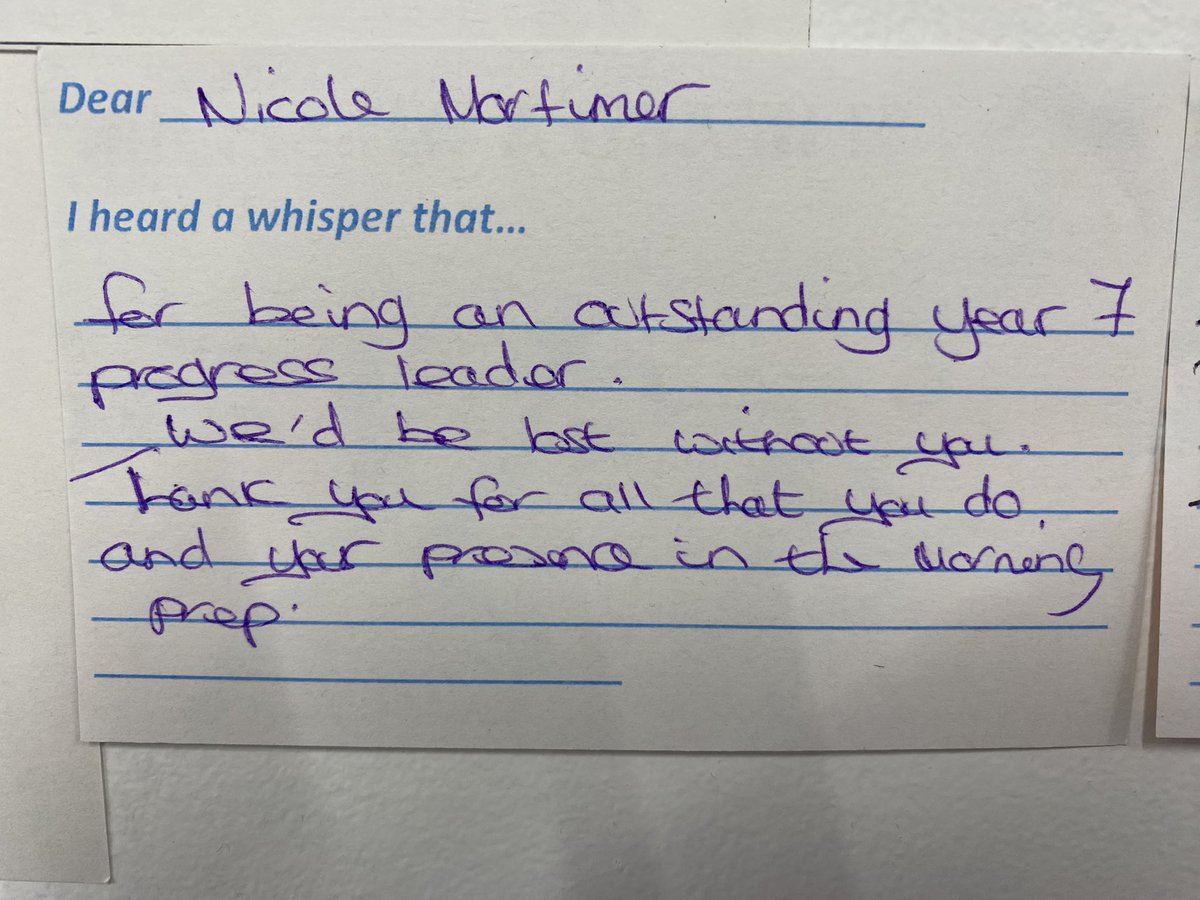 Dear Nicole Mortimer
I heard a whisper that...
for being an outstanding year 7
progress leader.
We'd be lost without you.
Thank you for all that you do,
and your presence in the morning
prep.